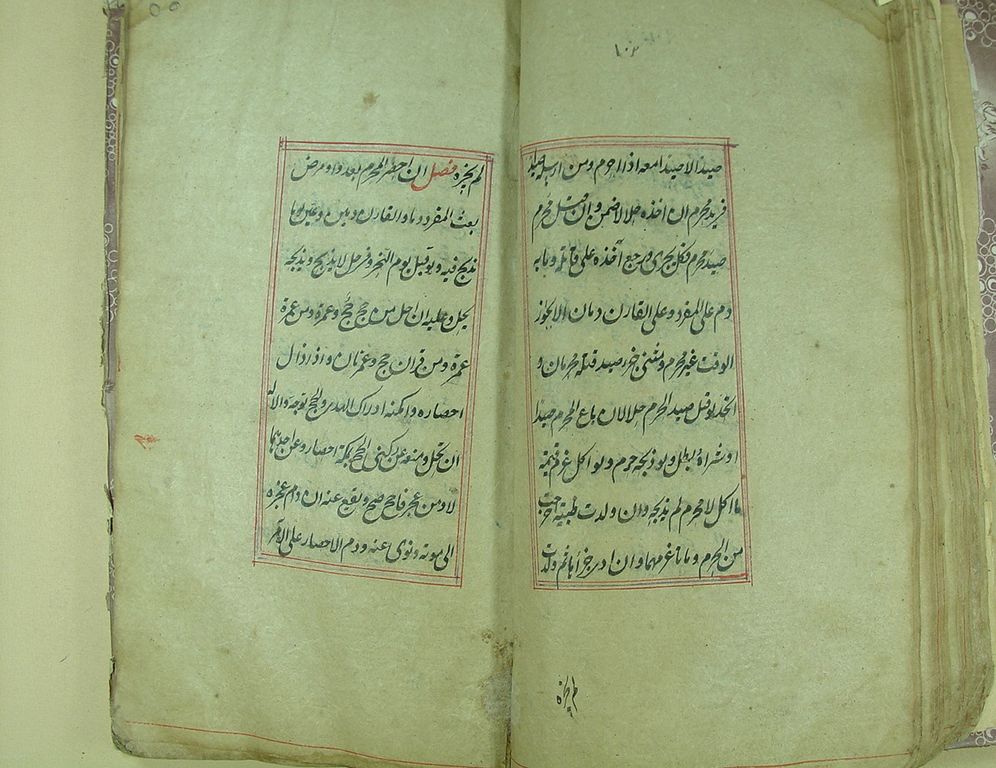 صيدا لا صيدا معه اذا احرم ومن ارسل صيدا
فى يد محرم ان اخذه حلالا ضمن وان قتل محرم
صيد محرم فكل يجزى ورجع آخذه على قاتله وما به
دم على المفرد وعلى القارن دمان الا بجواز
الوقت غير محرم ويثنى جزاء صيد قتله محرمان و
اتحد لو قتل صيد الحرم حلالان باع المحرم صيدا
او شراه بطل ولو ذبحه حرم ولو اكل غرم قيمة
ما اكل لا محرم لم يذبحه وان ولدت ظبية اخرجت
من الحرم وماتا غرمهما وان ادى جزاءها ثم ولدت
لم يجزه
لم يجزه فصل ان احصر المحرم بعدو او مرض
بعث المفرد دما والقارن دمين وعين يوما
يذبح فيه ولو قبل يوم النحر وفى حل لا يذبح وبذبحه
يحل وعليه ان حل من حج حج وعمرة ومن عمرة
عمرة ومن قران حج وعمرتان واذا زال
احصاره وامكنه ادراك الهدى والحج توجه والا له
ان يحل ومنعه عن ركنى الحج بمكة احصار وعن احدهما
لا ومن عجز فاحج صح ويقع عنه ان دام عجزه
الى موته ونوى عنه ودم الاحصار على الآمر